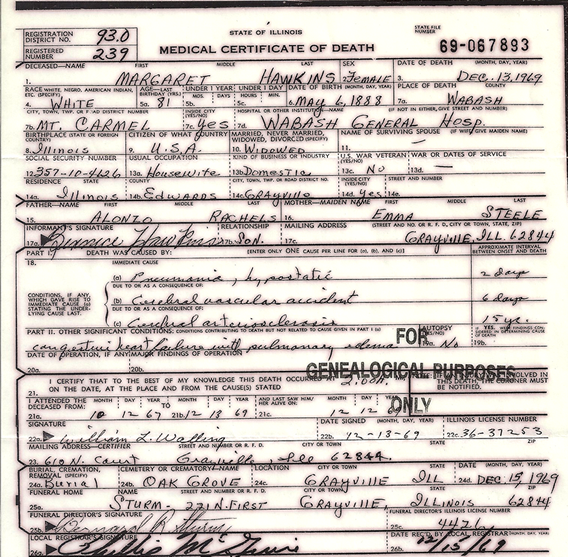 STATE OF ILLINOIS
STATE FILE NUMBER
REGISTRATION DISTRICT NO. 93.0
REGISTERED NUMBER 239
MEDICAL CERTIFICATE OF DEATH
69-067893
DECEASED—NAME FIRST MIDDLE LAST SEX DATE OF DEATH (MONTH, DAY, YEAR)
1. MARGARET HAWKINS 2. Female 3. DEC. 13, 1969
RACE WHITE, NEGRO, AMERICAN INDIAN, ETC. (SPECIFY) AGE—LAST BIRTHDAY (YRS.) UNDER 1 YEAR MOS. DAYS UNDER 1 DAY HOURS MIN. DATE OF BIRTH (MONTH, DAY, YEAR) PLACE OF DEATH COUNTY
4. WHITE 5a. 81 5b. 5c. 6. MAY 6, 1888 7a. WABASH
CITY, TOWN, TWP. OR ROAD DISTRICT NUMBER INSIDE CITY (YES/NO) HOSPITAL OR OTHER INSTITUTION—NAME (IF NOT IN EITHER, GIVE STREET AND NUMBER)
7b. MT. CARMEL 7c. Yes 7d. WABASH GENERAL HOSP.
BIRTHPLACE (STATE OR FOREIGN COUNTRY) CITIZEN OF WHAT COUNTRY MARRIED, NEVER MARRIED, WIDOWED, DIVORCED (SPECIFY) NAME OF SURVIVING SPOUSE (IF WIFE, GIVE MAIDEN NAME)
8. Illinois 9. U.S.A. 10. Widowed 11. —
SOCIAL SECURITY NUMBER USUAL OCCUPATION KIND OF BUSINESS OR INDUSTRY U.S. WAR VETERAN (YES/NO) WAR OR DATES OF SERVICE
12. 357-10-4426 13a. Housewife 13b. Domestic 13c. No 13d. —
RESIDENCE STATE COUNTY CITY, TOWN, TWP. OR ROAD DISTRICT NO. INSIDE CITY (YES/NO) STREET AND NUMBER
14a. Illinois 14b. Edwards 14c. GRAYVILLE 14d. Yes 14e.
FATHER—NAME FIRST MIDDLE LAST MOTHER—MAIDEN NAME FIRST MIDDLE LAST
15. ALONZO RACHELS 16. EMMA STEELE
INFORMANT'S SIGNATURE RELATIONSHIP MAILING ADDRESS (STREET AND NO. OR R.F.D., CITY OR TOWN, STATE, ZIP)
17a. Hawkins 17b. SON. 17c. GRAYVILLE, ILL 62844
PART I. DEATH WAS CAUSED BY: (ENTER ONLY ONE CAUSE PER LINE FOR (a), (b), AND (c)) APPROXIMATE INTERVAL BETWEEN ONSET AND DEATH
18. IMMEDIATE CAUSE
(a) Pneumonia, hypostatic 2 days
DUE TO OR AS A CONSEQUENCE OF:
CONDITIONS, IF ANY, WHICH GAVE RISE TO IMMEDIATE CAUSE (a) STATING THE UNDERLYING CAUSE LAST.
(b) Cerebral vascular accident 6 days
DUE TO OR AS A CONSEQUENCE OF:
(c) Cerebral arteriosclerosis 15 yr.
PART II. OTHER SIGNIFICANT CONDITIONS CONTRIBUTING TO DEATH BUT NOT RELATED TO CAUSE GIVEN IN PART I (a) AUTOPSY (YES/NO) IF YES, WERE FINDINGS CONSIDERED IN DETERMINING CAUSE OF DEATH
congestive heart failure with pulmonary edema 19a. No 19b.
FOR
GENEALOGICAL PURPOSES
ONLY
DATE OF OPERATION, IF ANY MAJOR FINDINGS OF OPERATION
20a. 20b.
I CERTIFY THAT TO THE BEST OF MY KNOWLEDGE THIS DEATH OCCURRED ON THE DATE, AT THE PLACE AND FROM THE CAUSE(S) STATED
21.
I ATTENDED THE DECEASED FROM: MONTH DAY YEAR TO MONTH DAY YEAR AND LAST SAW HIM/HER ALIVE ON: MONTH DAY
21a. 10 12 67 21b. 12 13 69 21c. 12 12
SIGNATURE DATE SIGNED (MONTH, DAY, YEAR) ILLINOIS LICENSE NUMBER
22a. William L. Walling 22b. 12-13-69 22c. 36-37253
MAILING ADDRESS—CERTIFIER STREET AND NUMBER OR R.F.D. CITY OR TOWN STATE ZIP
23. 610 N. Court Grayville Ill 62844.
BURIAL, CREMATION, REMOVAL (SPECIFY) CEMETERY OR CREMATORY—NAME LOCATION CITY OR TOWN STATE DATE (MONTH, DAY, YEAR)
24a. Burial 24b. OAK GROVE 24c. GRAYVILLE ILL 24d. DEC. 15, 1969
FUNERAL HOME NAME STREET AND NUMBER OR R.F.D. CITY OR TOWN STATE ZIP
25a. STURM - 221 N. FIRST GRAYVILLE ILLINOIS 62844
FUNERAL DIRECTOR'S SIGNATURE FUNERAL DIRECTOR'S ILLINOIS LICENSE NUMBER
25b. Sturm 25c. 4426
LOCAL REGISTRAR'S SIGNATURE DATE REC'D BY LOCAL REGISTRAR (MONTH, DAY, YEAR)
26b. 12/15/69